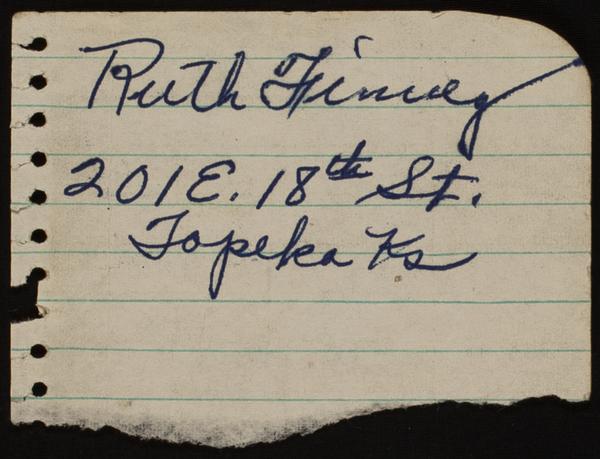 Ruth Finney
201 E. 18th St.
Topeka Ks